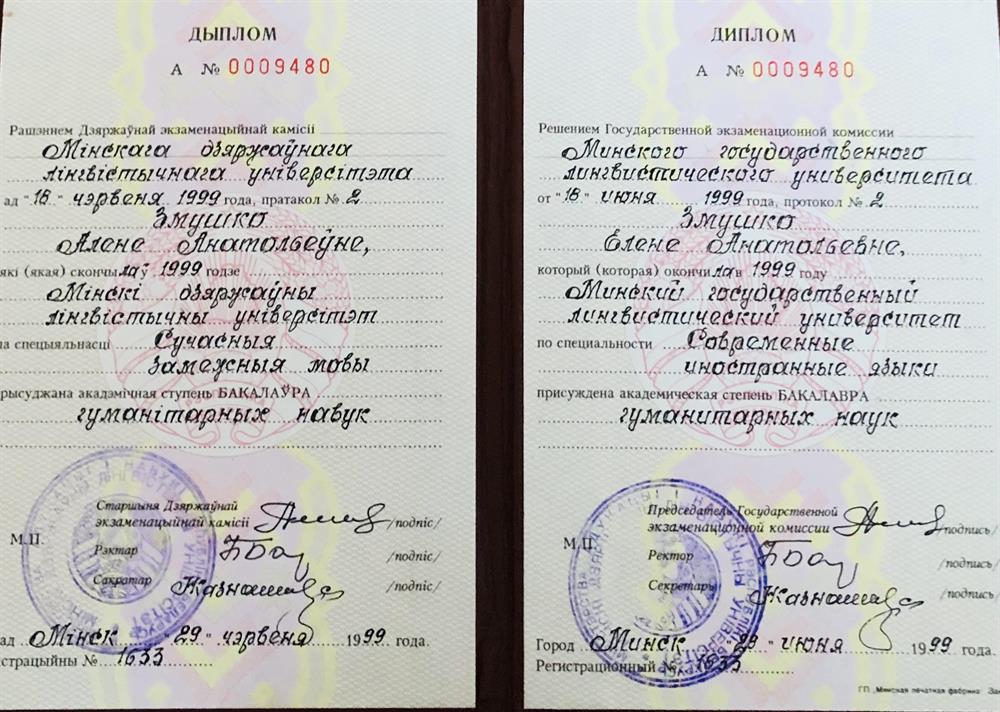 ДЫПЛОМ
А № 0009480
Рашэннем Дзяржаўнай экзаменацыйнай камісіі
Мінскага дзяржаўнага
лінгвістычнага універсітэта
ад "18" чэрвеня 1999 года, пратакол № 2
Змушко
Алене Анатольеўне,
які (якая) скончылаў 1999 годзе
Мінскі дзяржаўны
лінгвістычны універсітэт
па спецыяльнасці Сучасныя
замежныя мовы
прысуджана акадэмічная ступень БАКАЛАЎРА
гуманітарных навук
Старшыня Дзяржаўнай
экзаменацыйнай камісіі /подпіс/
М.П.
Рэктар /подпіс/
Сакратар /подпіс/
Горад Мінск "29" чэрвеня 1999 года.
Рэгістрацыйны № 1633
ДИПЛОМ
А № 0009480
Решением Государственной экзаменационной комиссии
Минского государственного
лингвистического университета
от "18" июня 1999 года, протокол № 2
Змушко
Елене Анатольевне,
который (которая) окончилав 1999 году
Минский государственный
лингвистический университет
по специальности Современные
иностранные языки
присуждена академическая степень БАКАЛАВРА
гуманитарных наук
Председатель Государственной
экзаменационной комиссии /подпись/
М.П.
Ректор /подпись/
Секретарь /подпись/
Город Минск "29" июня 1999 года.
Регистрационный № 1633
ГП „Минская печатная фабрика